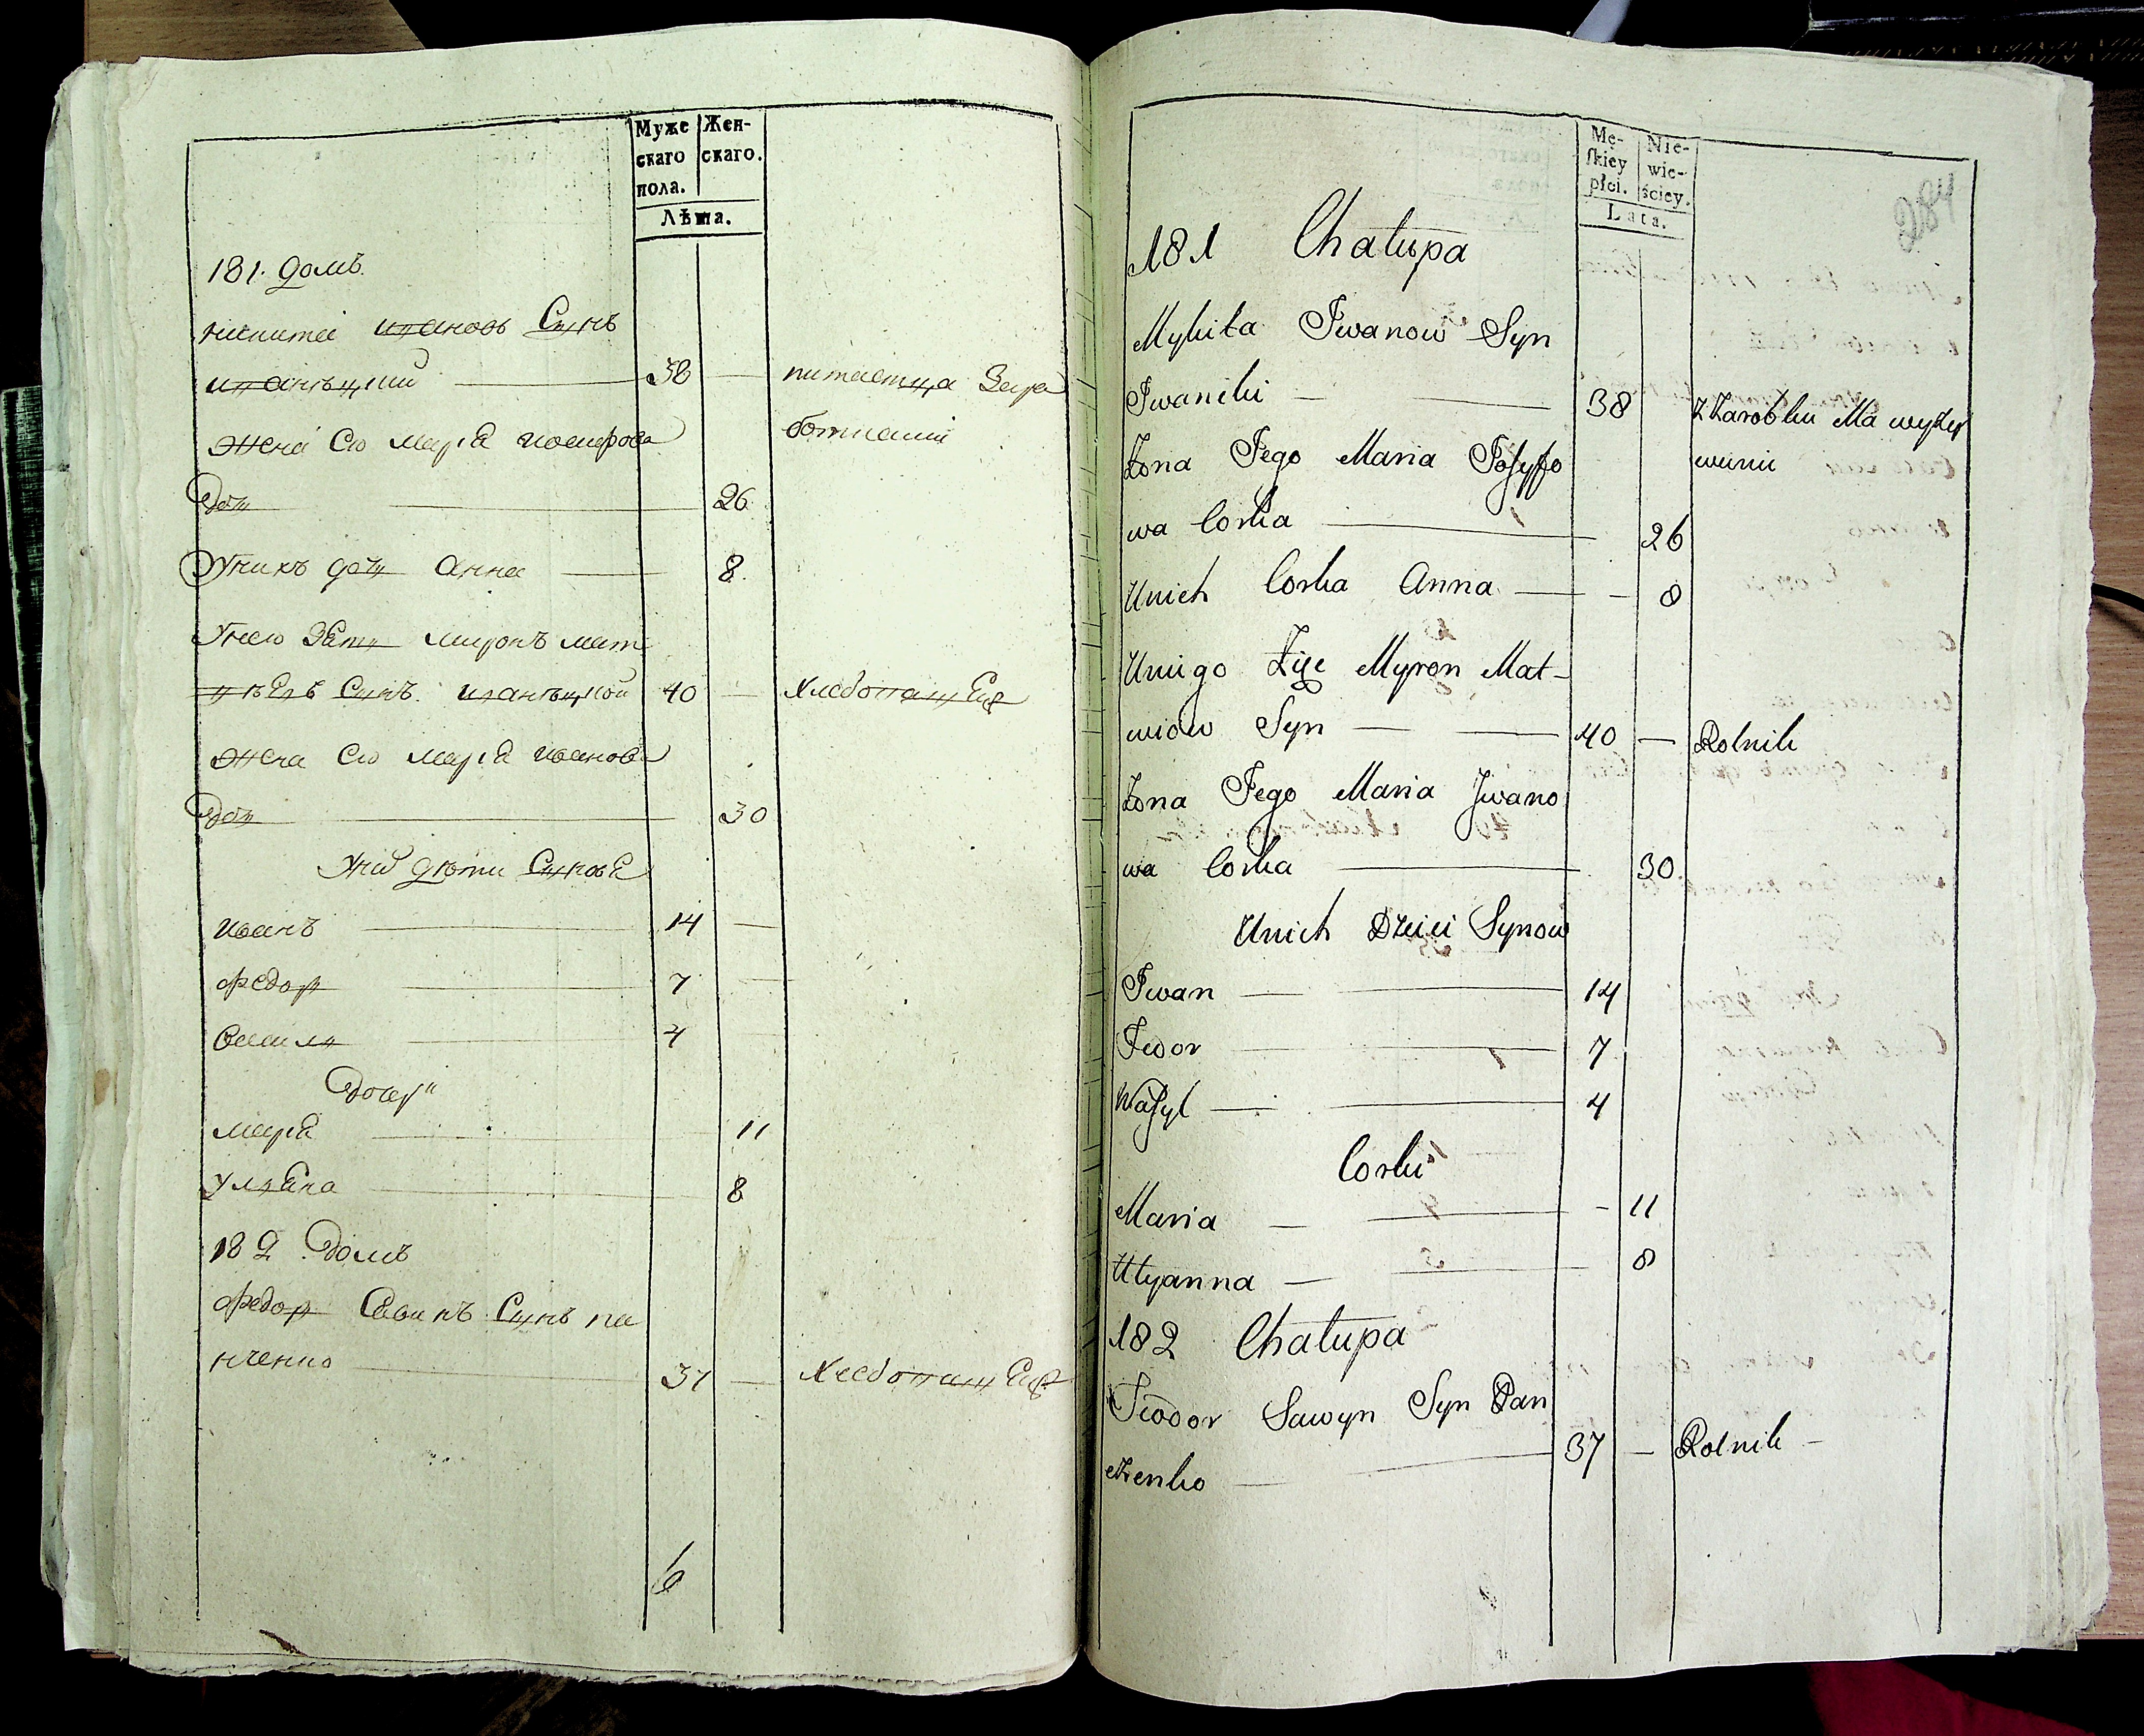 Муже
скаго
пола.
Жен-
скаго.
Лѣта.
181. домъ
никита ивановъ Сынъ
иваницкий 38 — питаетца Зара
ботками
жена его марія иосифова
доч 26
Уних доч Анна 8
Унего зять миронъ мат
вѣевъ Сынъ иваницкой 40 — хлебопашецъ
жена его марія иванова
доч 30
Уних дѣти Сыновя
иванъ 14 —
федор 7 —
васил 4 —
дочери
марія 11
уляна 8
182 домъ
федор Савинъ Сынъ па
нченко 37 — хлебопашецъ
6
284
Mę-
ſkiey
płci.
Nie-
wie-
ściey.
Lata.
181 Chałupa
Mykita Iwanow Syn
Iwaniki — — 38 z Zarobku Ma wyży
wienie
Zona Iego Maria Iosyfo
wa Corka — 26
Unich Corka Anna — — 8
Unigo Zięc Myron Mat-
wiow Syn — — 40 — Rolnik
Zona Iego Maria Jwano
wa Corka — 30
Unich Dzieci Synow
Iwan — — 14
Fedor — — 7
Wasyl — — 4
Corki
Maria — — - 11
Ulyanna — — 8
182 Chałupa
Feodor Sawyn Syn Pan
czenko — — 37 — Rolnik —